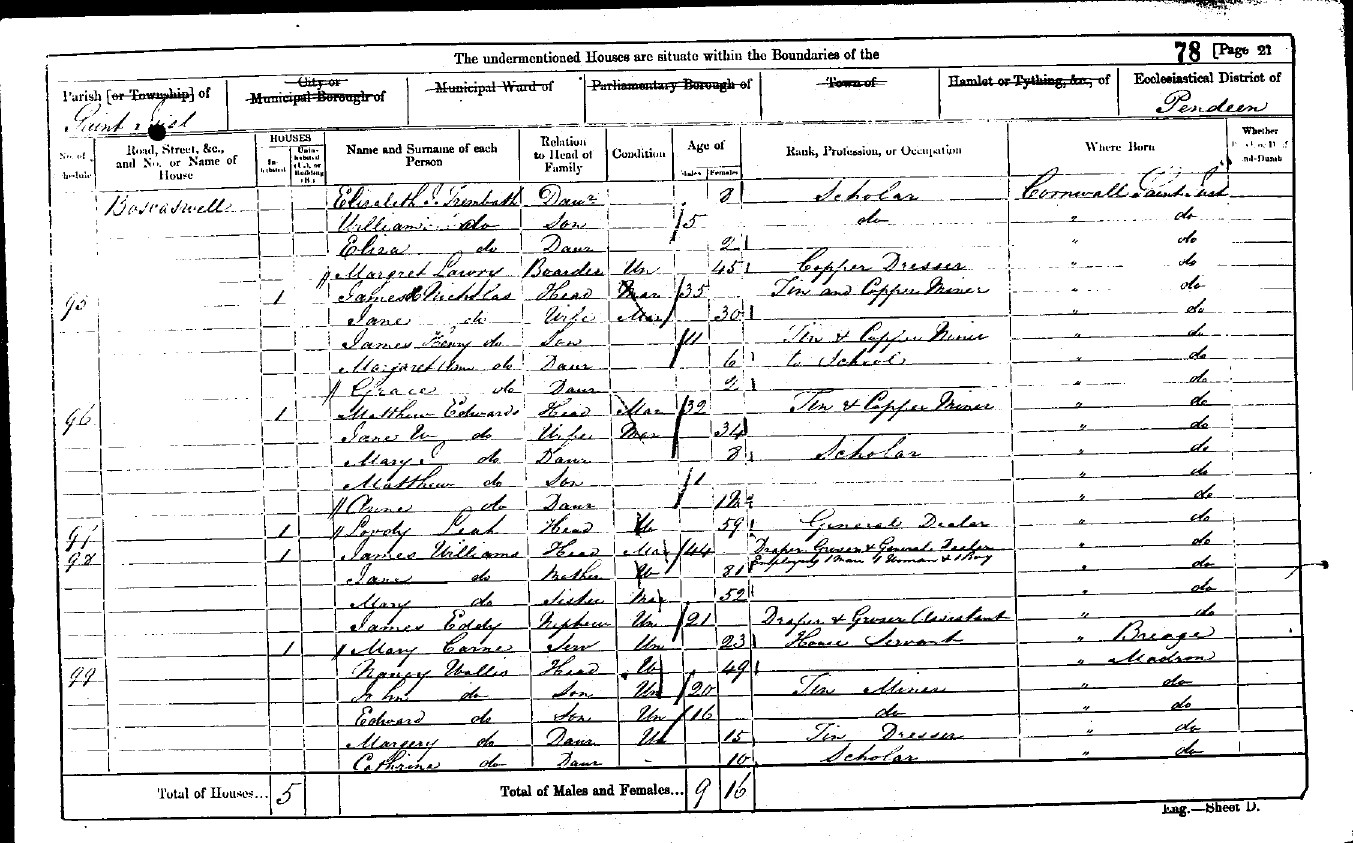 The undermentioned Houses are situate within the Boundaries of the 78 [Page 21
Parish [or Township] of City or Municipal Borough of Municipal Ward of Parliamentary Borough of Town of Hamlet or Tything, &c., of Ecclesiastical District of
Saint Just Pendeen
No. of Schedule Road, Street, &c., and No. or Name of House HOUSES Inhabited Uninhabited (U.), or Building (B.) Name and Surname of each Person Relation to Head of Family Condition Age of Males Females Rank, Profession, or Occupation Where Born Whether
Boscaswell Elizabeth J. Trembath Daur 8 Scholar Cornwall Saint Just
William do Son 5 do " do
Eliza do Daur 2 " do
Margret Lawry Boarder Un 45 Copper Dresser " do
95 1 James Nicholas Head Mar 35 Tin and Copper Miner " do
Jane do Wife Mar 30 " do
James Henry do Son 11 Tin & Copper Miner " do
Margaret Ann do Daur 6 to School " do
Grace do Daur 2 " do
96 1 Matthew Edwards Head Mar 32 Tin & Copper Miner " do
Jane W do Wife Mar 34 " do
Mary do Daur 8 Scholar " do
Matthew do Son 1 " do
Anne do Daur " do
97 1 Lovdy Leah Head 59 General Dealer " do
98 1 James Williams Head Mar 44 Draper Grocer & General Dealer " do
Employing 1 Man 4 Woman & 1 Boy
Jane do Mother W 81 " do
Mary do Sister Mar 52 " do
James Eddy Nephew Un 21 Draper & Grocer Assistant " do
1 Mary Carne Serv Un 23 House Servant " Breage
99 Nancy Wallis Head W 49 " Madron
John do Son Un 20 Tin Miner " do
Edward do Son Un 16 do " do
Margery do Daur Un 15 Tin Dresser " do
Cathrine do Daur - 10 Scholar " do
Total of Houses... 5 Total of Males and Females... 9 16
Eng.—Sheet D.